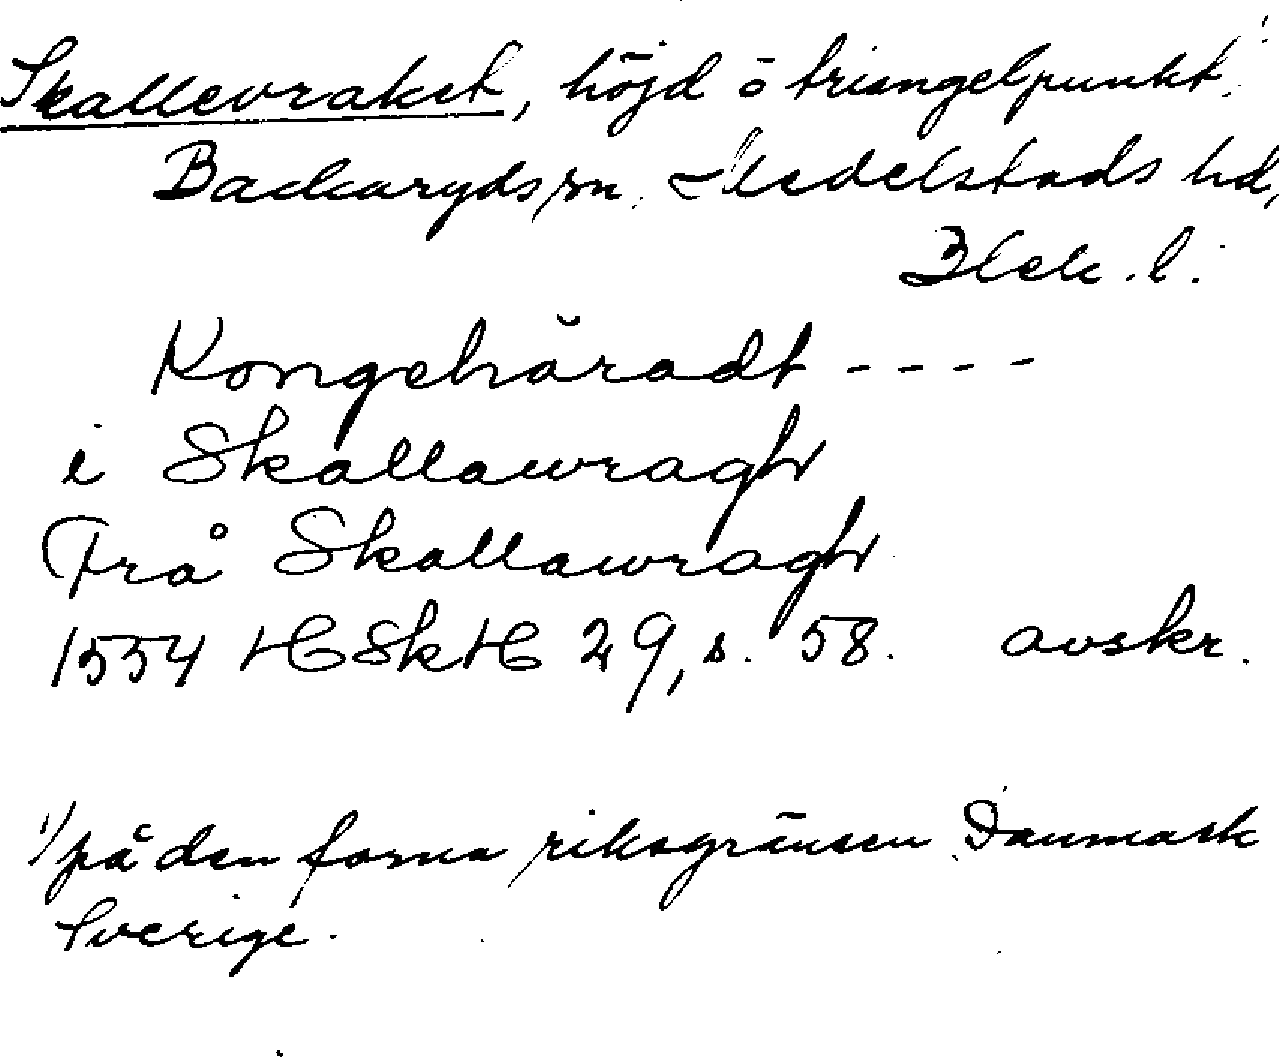 Skallevraket, höjd ö triangelpunkt. 1
Backaryds sn. Medelstads hd,
Blek. l.
Kongehäradt ----
i Skallawragh
Frå Skallawragh
1554 HSkH 29, s. 58. avskr.
1/ på den forna riksgränsen Danmark
Sverige.